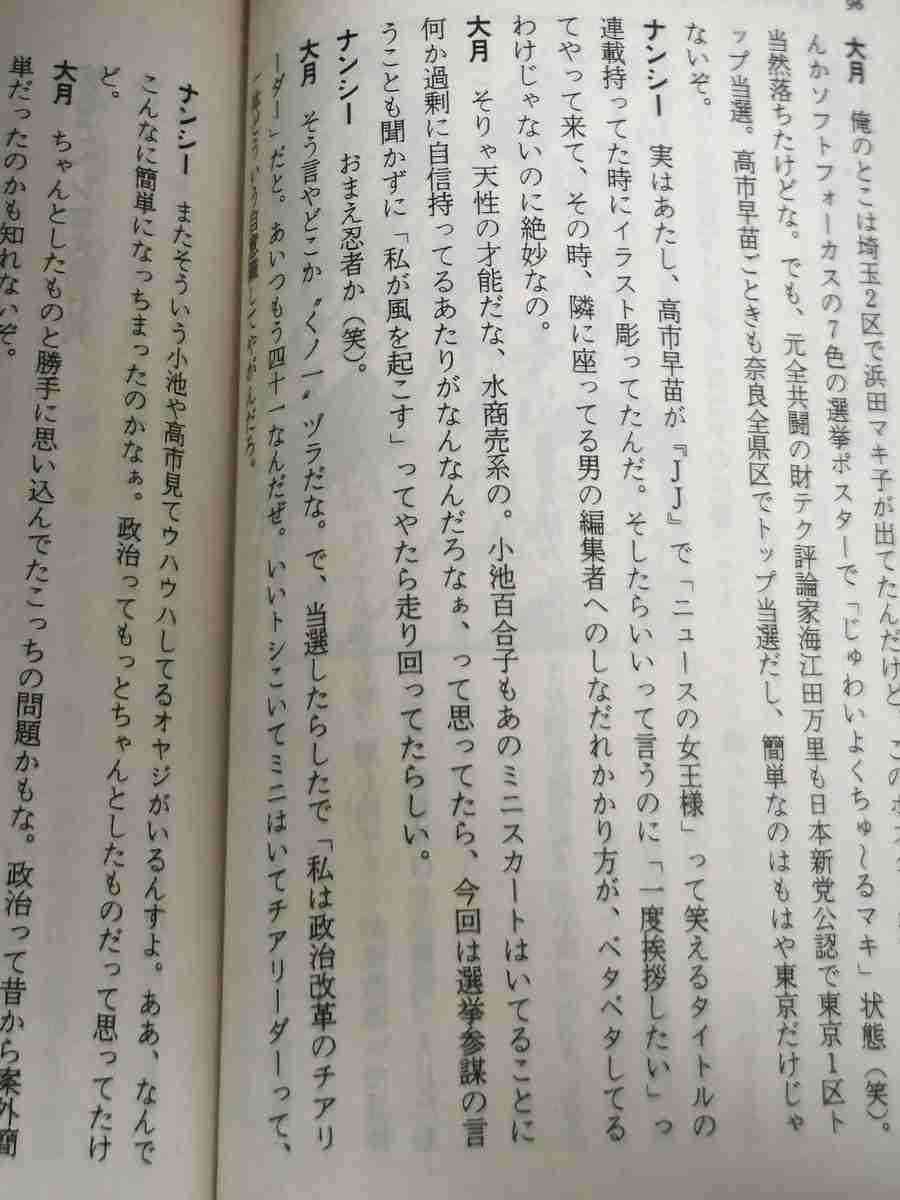 96
大月　俺のとこは埼玉2区で浜田マキ子が出てたんだけど、このポス
んかソフトフォーカスの7色の選挙ポスターで「じゅわいよくちゅ～るマキ」状態（笑）。
当然落ちたけどな。でも、元全共闘の財テク評論家海江田万里も日本新党公認で東京1区ト
ップ当選。高市早苗ごときも奈良全県区でトップ当選だし、簡単なのはもはや東京だけじゃ
ないぞ。
ナンシー　実はあたし、高市早苗が『JJ』で「ニュースの女王様」って笑えるタイトルの
連載持ってた時にイラスト彫ってたんだ。そしたらいいって言うのに「一度挨拶したい」っ
てやって来て、その時、隣に座ってる男の編集者へのしなだれかかり方が、ベタベタしてる
わけじゃないのに絶妙なの。
大月　そりゃ天性の才能だな、水商売系の。小池百合子もあのミニスカートはいてることに
何か過剰に自信持ってるあたりがなんなんだろなぁ、って思ってたら、今回は選挙参謀の言
うことも聞かずに「私が風を起こす」ってやたら走り回ってたらしい。
ナンシー　おまえ忍者か（笑）。
大月　そう言やどこか〝くノ一〟ヅラだな。で、当選したらしたで「私は政治改革のチアリ
ーダー」だと。あいつもう四十一なんだぜ。いいトシこいてミニはいてチアリーダーって、
一体どういう自意識してやがんだろ。
ナンシー　またそういう小池や高市見てウハウハしてるオヤジがいるんすよ。ああ、なんで
こんなに簡単になっちまったのかなぁ。政治ってもっとちゃんとしたものだって思ってたけ
ど。
大月　ちゃんとしたものと勝手に思い込んでたこっちの問題かもな。政治って昔から案外簡
単だったのかも知れないぞ。